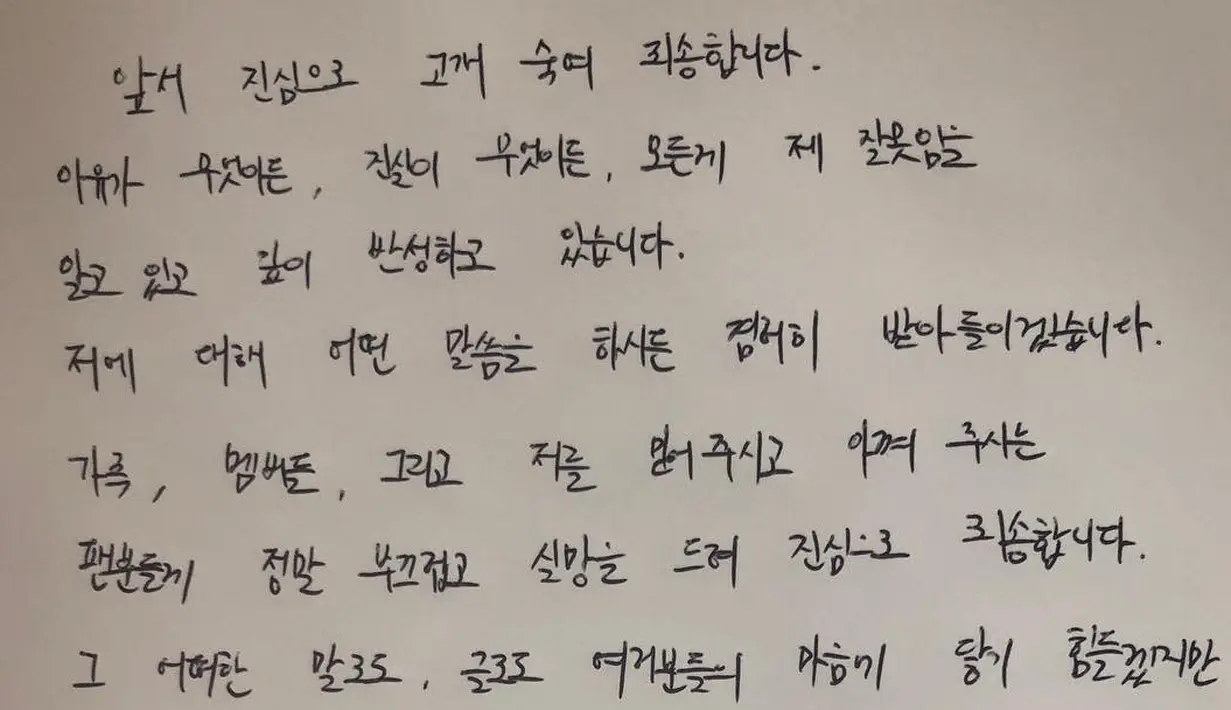 앞서 진심으로 고개 숙여 죄송합니다.
이유가 무엇이든, 진실이 무엇이든, 모든게 제 잘못임을
알고 있고 깊이 반성하고 있습니다.
저에 대해 어떤 말씀을 하시든 겸허히 받아들이겠습니다.
가족, 멤버들, 그리고 저를 믿어주시고 아껴 주시는
팬분들게 정말 부끄럽고 실망을 드려 진심으로 죄송합니다.
그 어떠한 말로도, 글로도 여러분들의 마음이 닿기 힘들겠지만